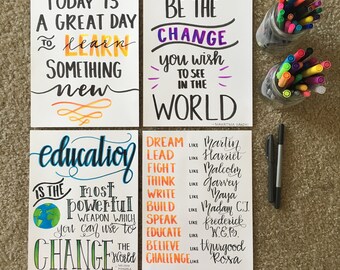 TODAY IS
A GREAT DAY
TO learn
SOMETHING
new
BE THE
CHANGE
you WISH
TO SEE
IN THE
WORLD
education
IS THE most
powerful
WEAPON WHICH
you can use TO
CHANGE THE World
DREAM LIKE Martin
LEAD LIKE Harriet
FIGHT LIKE Malcolm
THINK LIKE Garvey
WRITE LIKE Maya
BUILD LIKE Madam C.J.
SPEAK LIKE Frederick
EDUCATE LIKE W.E.B.
BELIEVE LIKE Thurgood
CHALLENGE LIKE Rosa